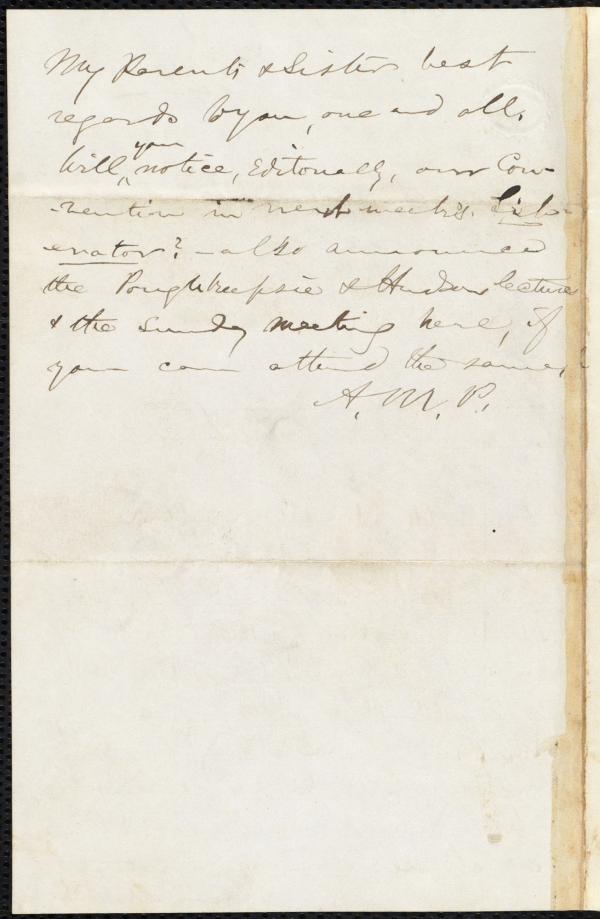 My Parents & Sister best
regards to you, one and all.
Will you notice, Editorially, our Con-
-vention in next week's Lib-
erator? - also announce
the Poughkeepsie & Hudson lecture
& the Sunday meeting here, if
you can attend the same,
A. M. P.